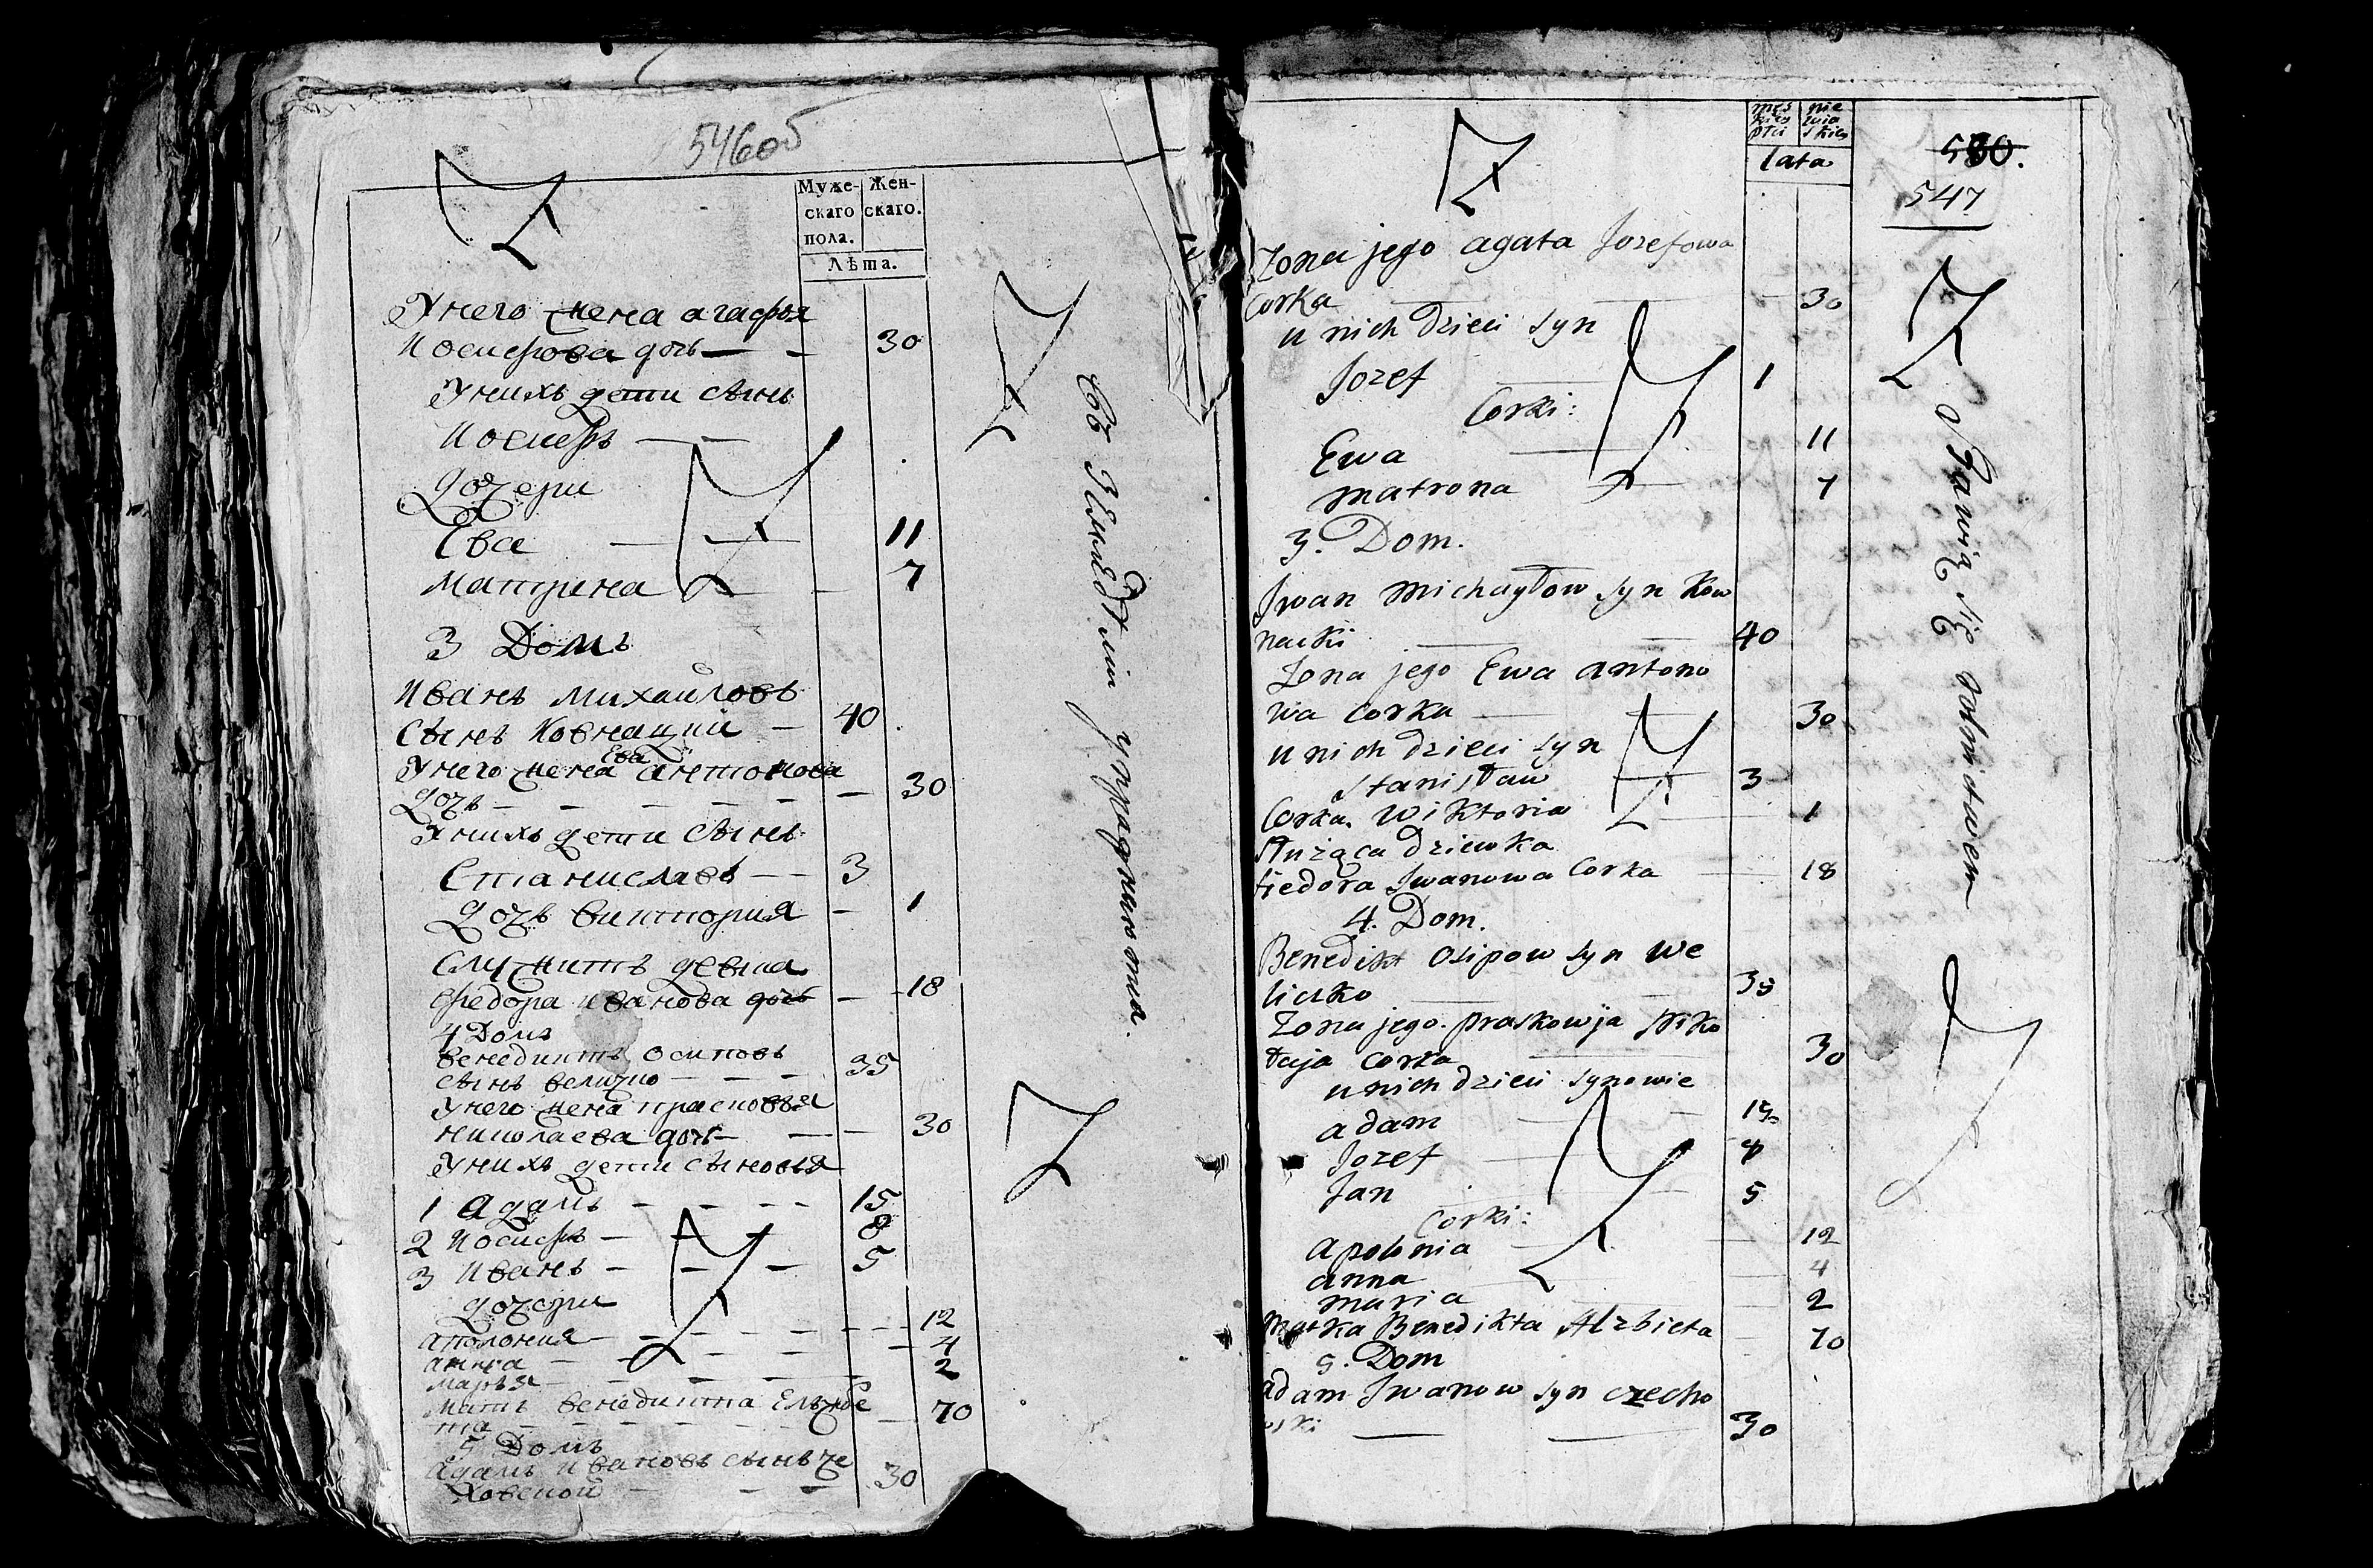 546об
Муже- Жен-
скаго скаго.
пола.
Лѣта.
У него жена агафья
Иосифова дочь — 30
У нихъ дети сынъ
Иосифъ —
дочери
Ева — 11
Матрина — 7
3 Домъ
Иванъ Михайловъ
сынъ Ковнацкий — 40
У него жена Ева антонова
дочь — 30
У нихъ дети сынъ
Станиславъ — 3
дочь виктория — 1
Служитъ девка
федора иванова дочь — 18
4 Домъ
венедиктъ осиповъ
сынъ величко — 35
У него жена прасковья
николаева дочь — 30
У нихъ дети сыновья
1 адамъ — 15
2 Иосифъ — 8
3 Иванъ — 5
дочери
аполония — 12
анна — 4
марья — 2
мать венедикта Елжбе
та — 70
5 Домъ
адамъ ивановъ сынъ че
ховской — 30
въ упражняются.
męs nie
kiey wia
płci skiey
lata
580.
547
Zona jego agata Jozefowa
corka — 30
u nich dzieci syn
Jozef — 1
Corki:
Ewa — 11
matrona — 7
3. Dom.
Jwan michayłow syn Kow
nacki — 40
Zona jego Ewa antono
wa corka — 30
u nich dzieci syn
Stanisław — 3
Corka. Wiktoria — 1
służąca dziewka
fiedora Jwanowa Corka — 18
4. Dom.
Benedikt Osipow syn We
liczko — 35
Zona jego. praskowja Niko
łaja corka — 30
u nich dzieci synowie
adam — 15
Jozef — 8
Jan — 5
Corki:
apolonia — 12
anna — 4
maria — 2
matka Benedikta Alzbieta — 70
5. Dom
adam Jwanow syn czecho
wski — 30
Bawią się rolnictwem